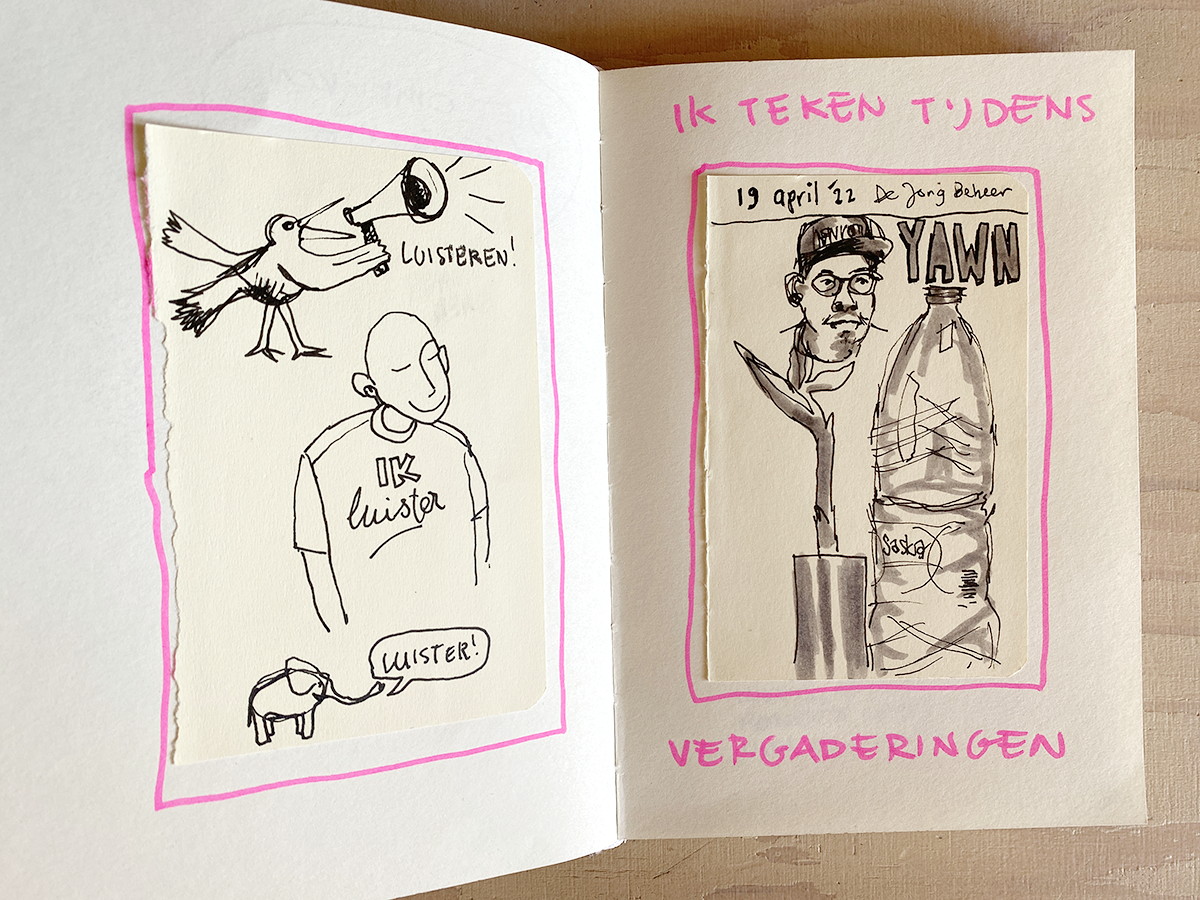 LUISTEREN!
IK
luister
LUISTER!
IK TEKEN TIJDENS
19 april '22 De Jong Beheer
YAWN
Saskia
VERGADERINGEN